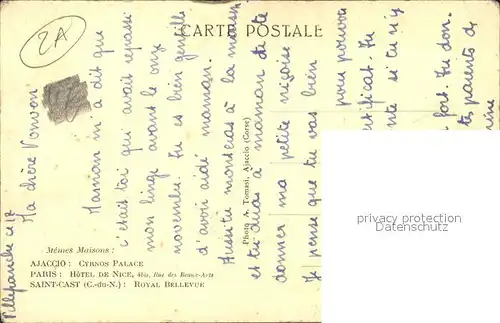 2A
CARTE POSTALE
Villefranche ce 17
Ma chère Vonvon
Maman m'a dit que
c'était toi qui avait repassé
mon linge avant le onze
novembre. Tu es bien gentille
d'avoir aidé maman.
Aussitu monteras à la maison
et tu diras à maman de te
donner ma petite niçoise
Je pense que tu vas bien
pour pouvoir
Tu
si tu n'y
fort. Tu don
tes parents de
Photo A. Tomasi, Ajaccio (Corse)
Mêmes Maisons :
AJACCIO : CYRNOS PALACE
PARIS : HÔTEL DE NICE, 4bis, Rue des Beaux-Arts
SAINT-CAST (C.-du-N.) : ROYAL BELLEVUE
privacy protection
Datenschutz